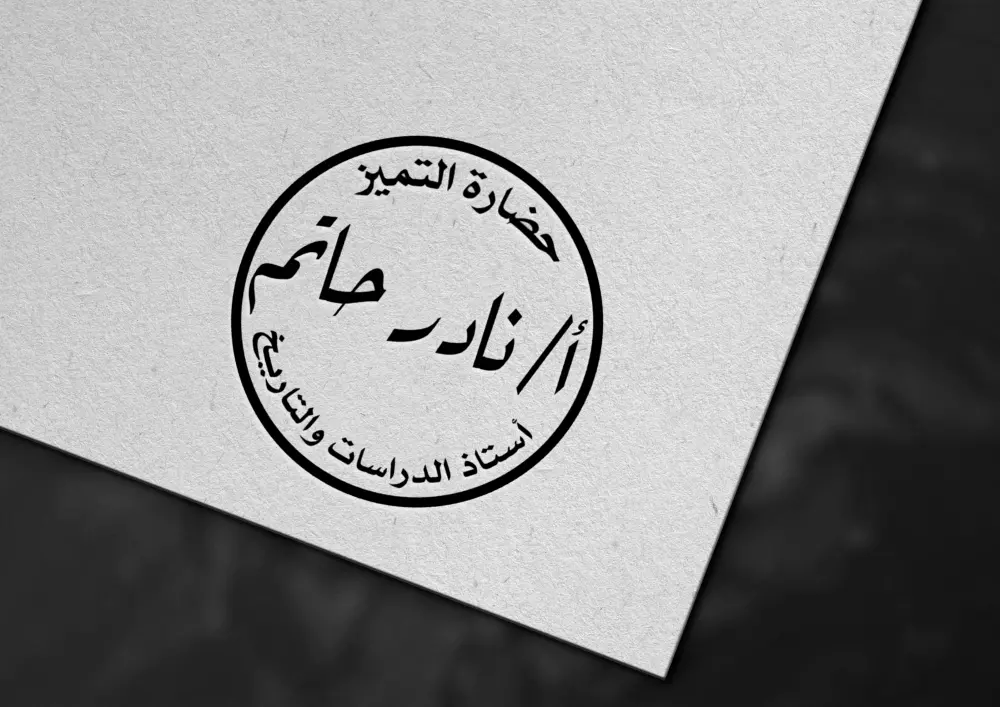 حضارة التميز
أ/ نادر حاتم
أستاذ الدراسات والتاريخ